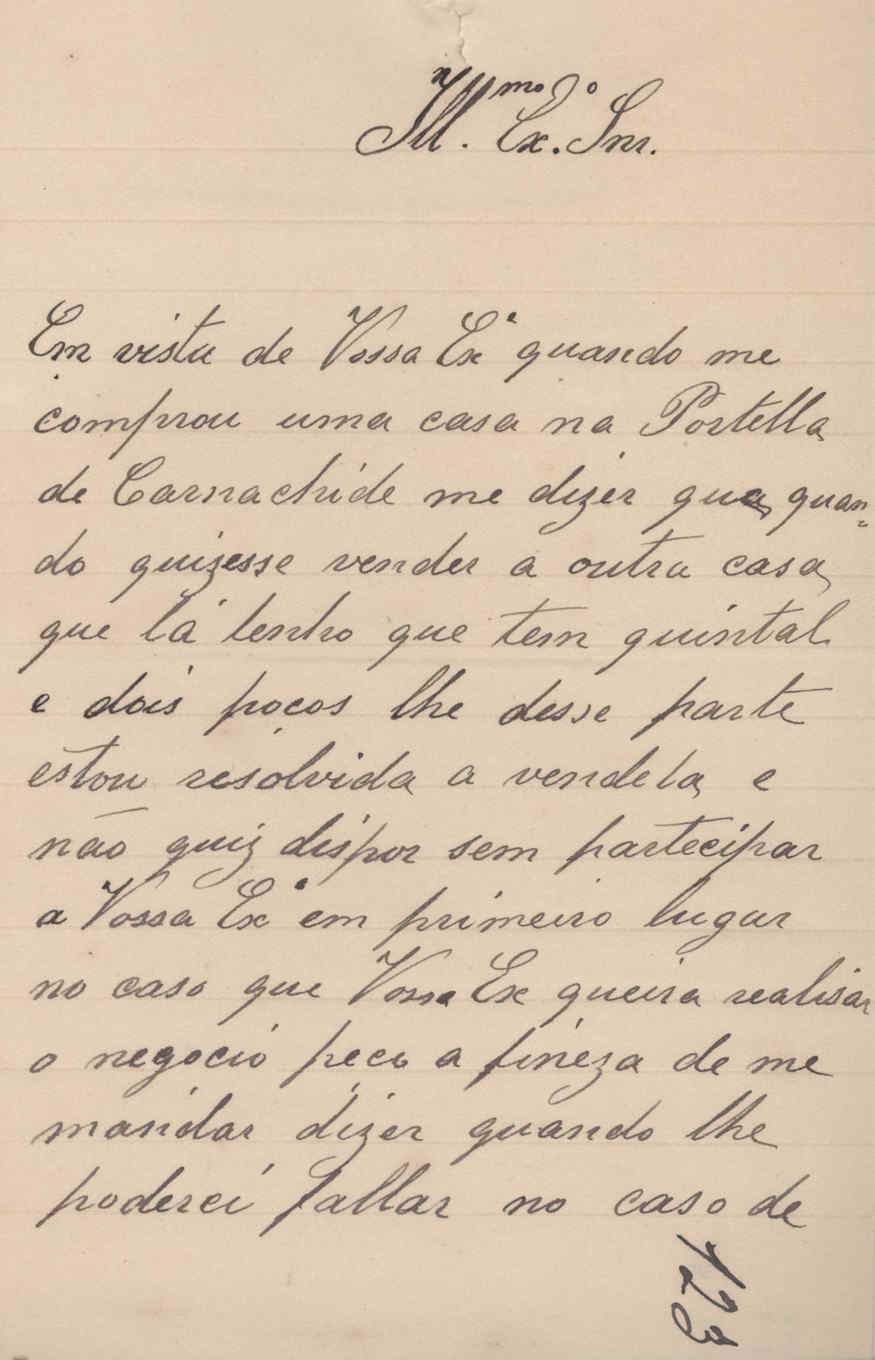 Ill.mo Ex.o Snr.
Em vista de Vossa Exª quando me
comprou uma casa na Portella
de Carnachide me dizer que, quan=
do quizesse vender a outra casa,
que lá tenho que tem quintal
e dois poços lhe desse parte
estou resolvida a vendela, e
não quiz dispor sem partecipar
a Vossa Exª em primeiro lugar
no caso que Vossa Ex queira realisar
o negocio peço a fineza de me
mandar dizer quando lhe
poderei fallar no caso de
123